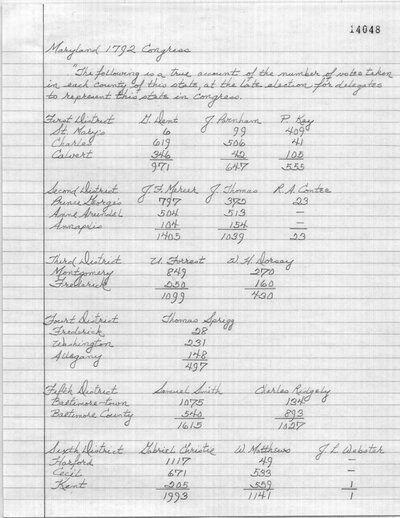 14048
Maryland 1792 Congress
"The following is a true account of the number of votes taken
in each county of this state, at the late election for delegates
to represent this state in Congress.
First District G. Dent J. Parnham P. Key
St. Mary's 6 99 409
Charles 619 506 41
Calvert 346 42 105
971 647 555
Second District J. F. Mercer J. Thomas R. A. Contee
Prince George's 797 372 23
Anne Arundel 504 513 —
Annapolis 104 154 —
1405 1039 23
Third District U. Forrest W. H. Dorsey
Montgomery 849 270
Frederick 250 160
1099 430
Fourt District Thomas Sprigg
Frederick 28
Washington 231
Allegany 148
497
Fifth District Samuel Smith Charles Ridgely
Baltimore-town 1075 134
Baltimore County 540 893
1615 1027
Sixth District Gabriel Christie W. Matthews J. L. Webster
Harford 1117 49 —
Cecil 671 533 —
Kent 205 559 1
1993 1141 1